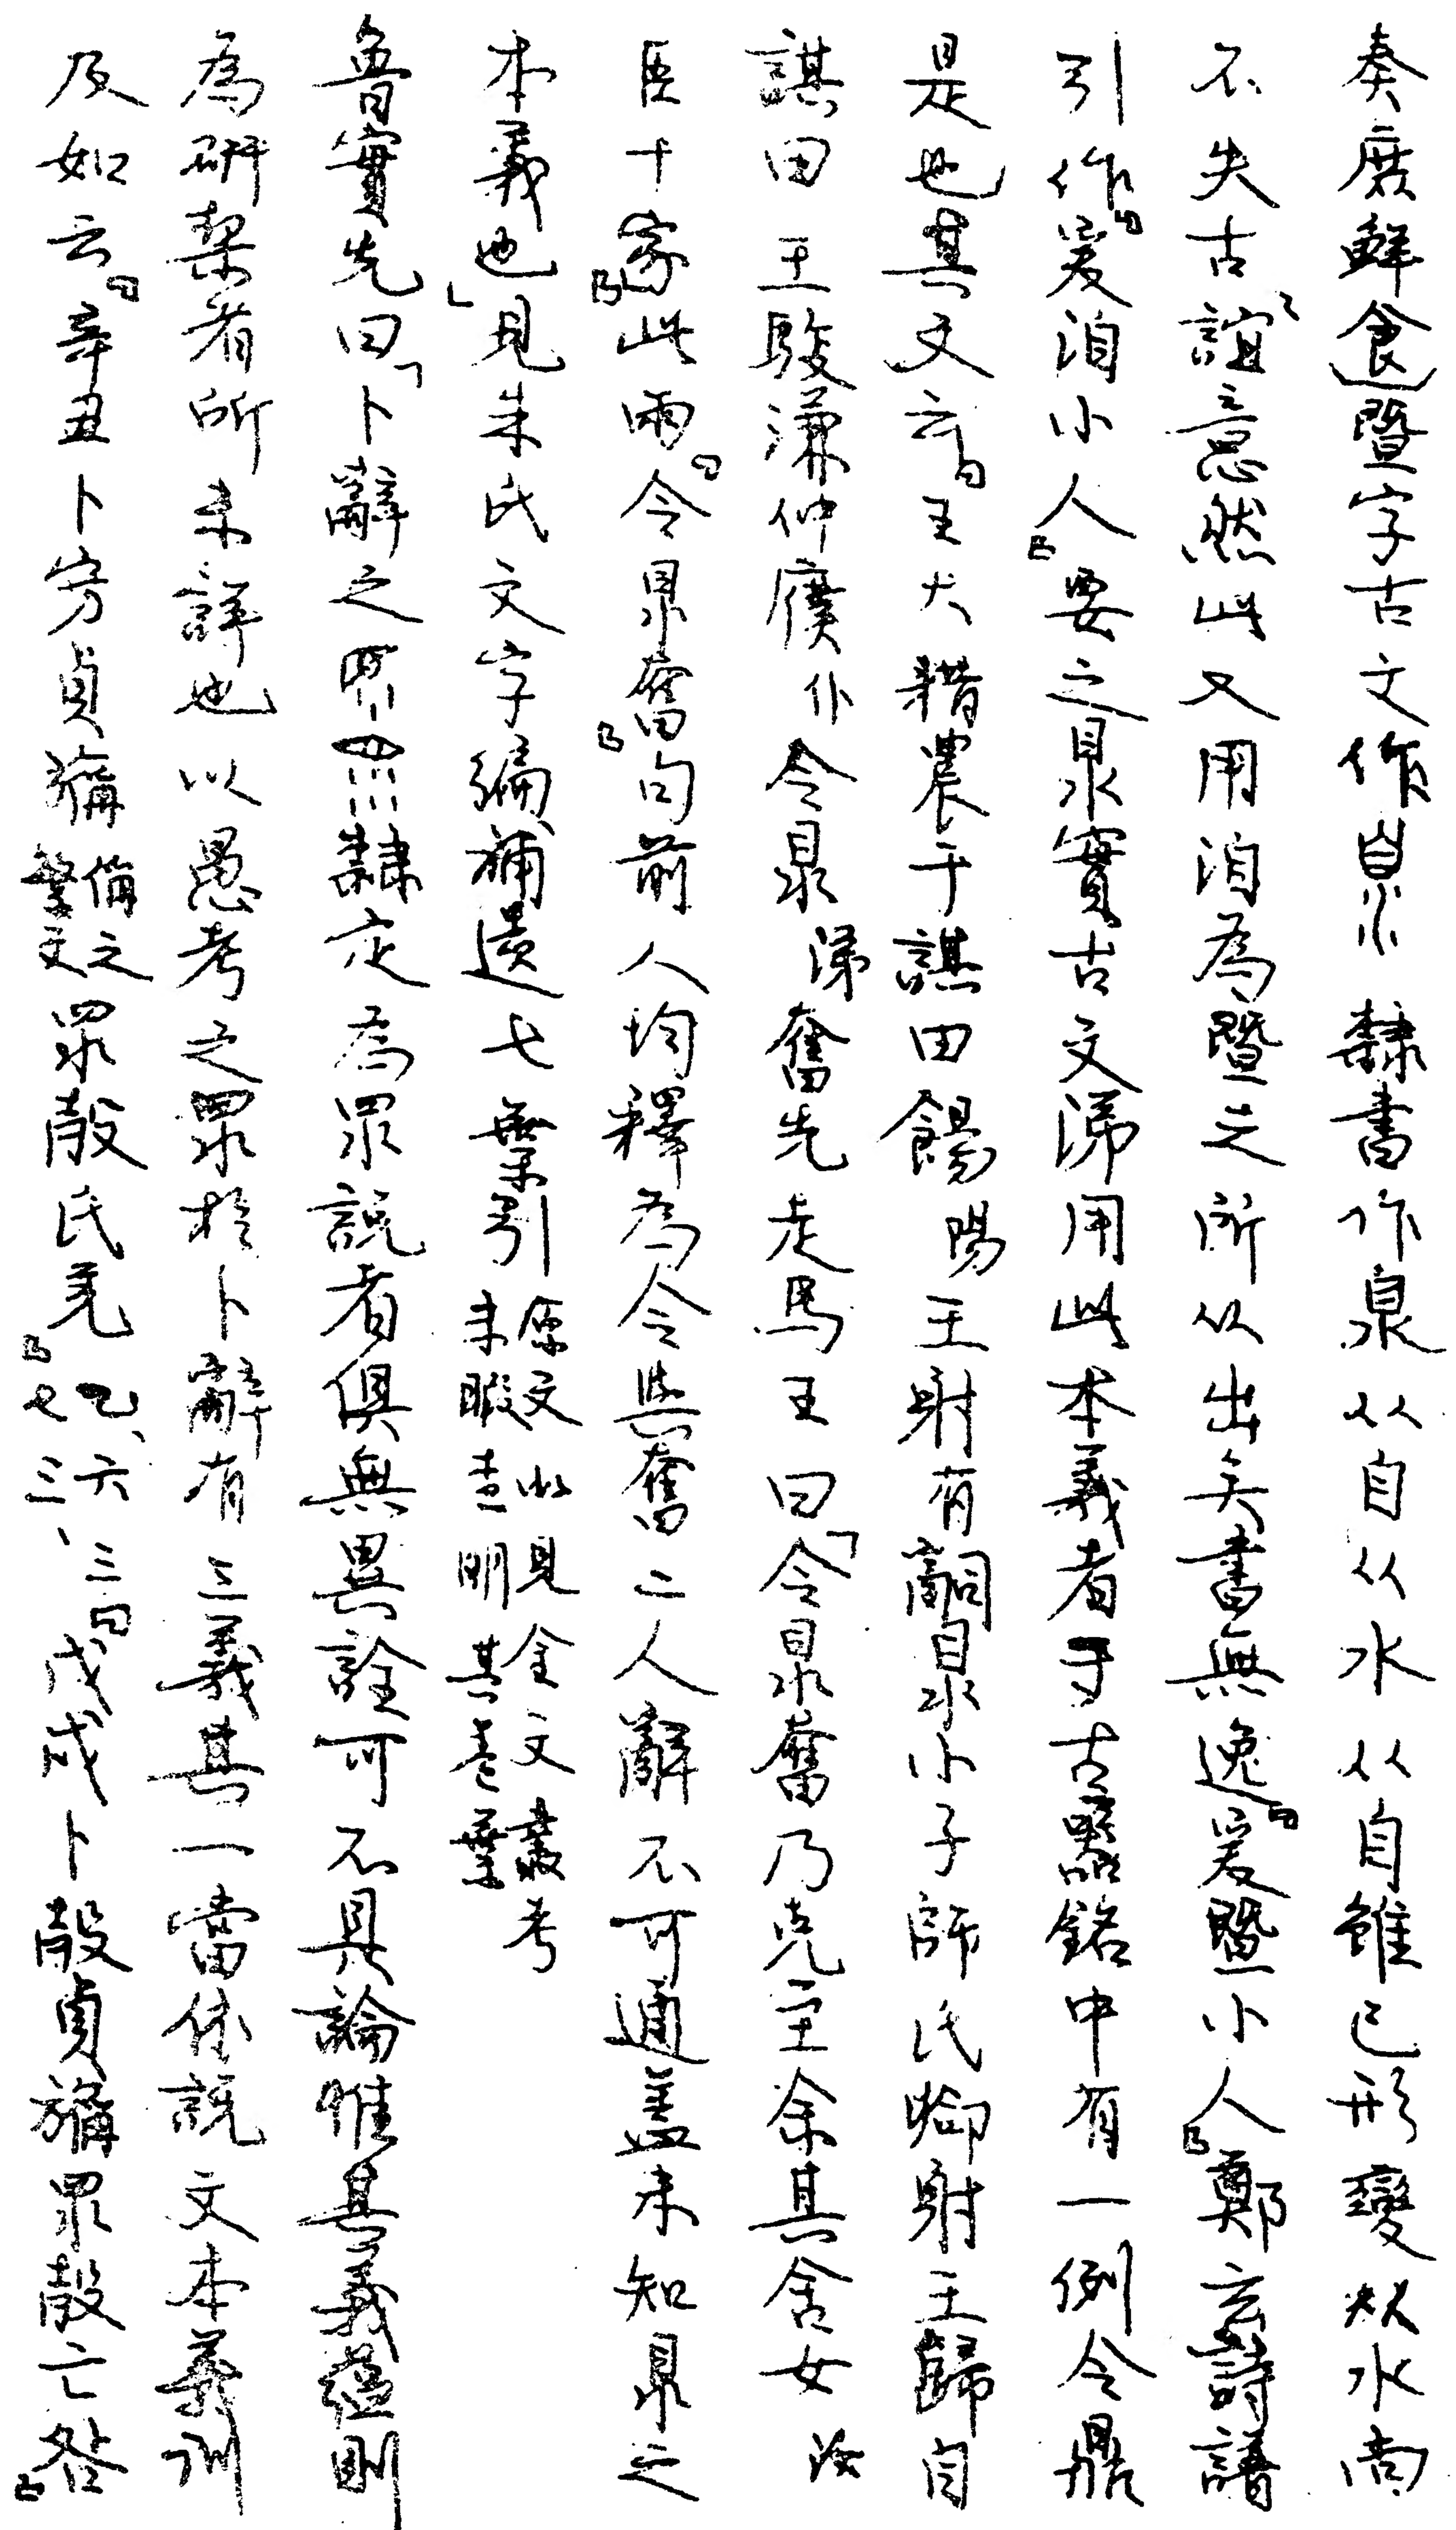 奏庶鮮食」暨字古文作𣅌隸書作泉从自从水从自雖已形變然水尚
不失古誼意然此又用洎為暨之所从出矣書無逸『爰暨小人』鄭玄詩譜
引作『爰洎小人』要之㫚實古文涕用此本義者于古器銘中有一例令鼎
是也其文云『王大耤農于諆田餳陽王射有嗣眔小子師氏卿射王歸自
諆田王馭溓仲㒒仆令眔涕奮先走馬王曰「令眔奮乃克至余其舍女汝
臣十家』此兩『令眔奮』句前人均釋為令與奮二人辭不可通蓋未知眔之
本義也」見朱氏文字編補遺七葉引原文當見金文叢考未暇查明其卷葉
魯實先曰「卜辭之𥄳𥄳隸定為眔說者俱無異詮可不具論惟其義蘊則
為研栔者所未詳也以愚考之眔於卜辭有三義其一當依說文本義訓
及如云『辛丑卜㱿貞㫃偁之繁文眔㱿氏羌』乙、六三七三、『戊戌卜㱿貞㫃眔㱿亡咎』